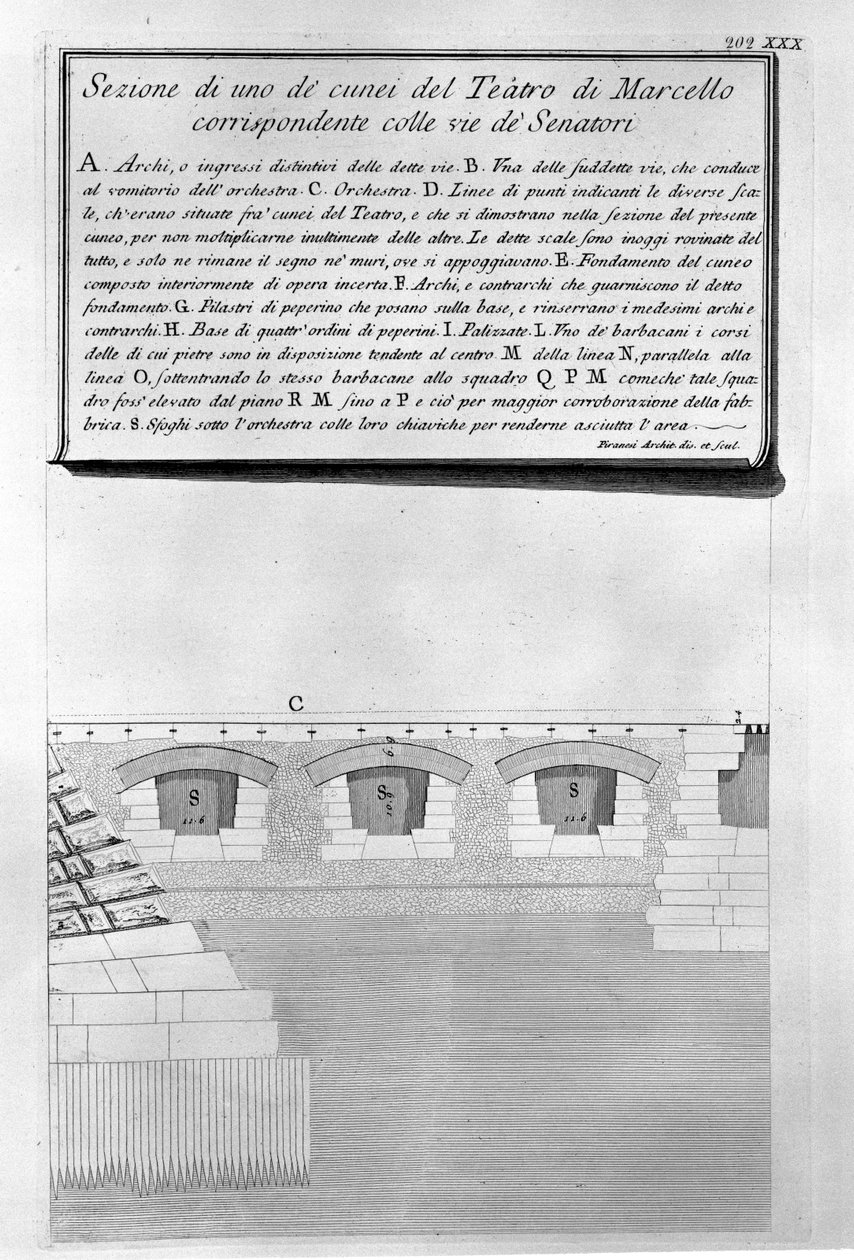 202 XXX
Sezione di uno de' cunei del Teàtro di Marcello
corrispondente colle vie de' Senatori
A. Archi, o ingressi distintivi delle dette vie. B. Vna delle ſuddette vie, che conduce
al vomitorio dell'orchestra. C. Orchestra. D. Linee di punti indicanti le diverse ſca:
le, ch'erano situate fra' cunei del Teatro, e che si dimostrano nella ſezione del presente
cuneo, per non moltiplicarne inultimente delle altre. Le dette scale ſono inoggi rovinate del
tutto, e solo ne rimane il segno ne' muri, ove si appoggiavano. E. Fondamento del cuneo
composto interiormente di opera incerta. F. Archi, e contrarchi che guarniscono il detto
fondamento. G. Pilastri di peperino che posano sulla base, e rinserrano i medesimi archi e
contrarchi. H. Base di quattr'ordini di peperini. I. Palizzate. L. Vno de' barbacani i corsi
delle di cui pietre sono in disposizione tendente al centro M della linea N, parallela alla
linea O, ſottentrando lo stesso barbacane allo squadro Q P M comeche' tale ſqua:
dro foss' elevato dal piano R M ſino a P e ciò per maggior corroborazione della fab:
brica. S. Sfoghi sotto l'orchestra colle loro chiaviche per renderne asciutta l'area.
Piranesi Archit. dis. et ſcul.
C
2.4
6.6
S
S
S
11.6
10.9
11.6